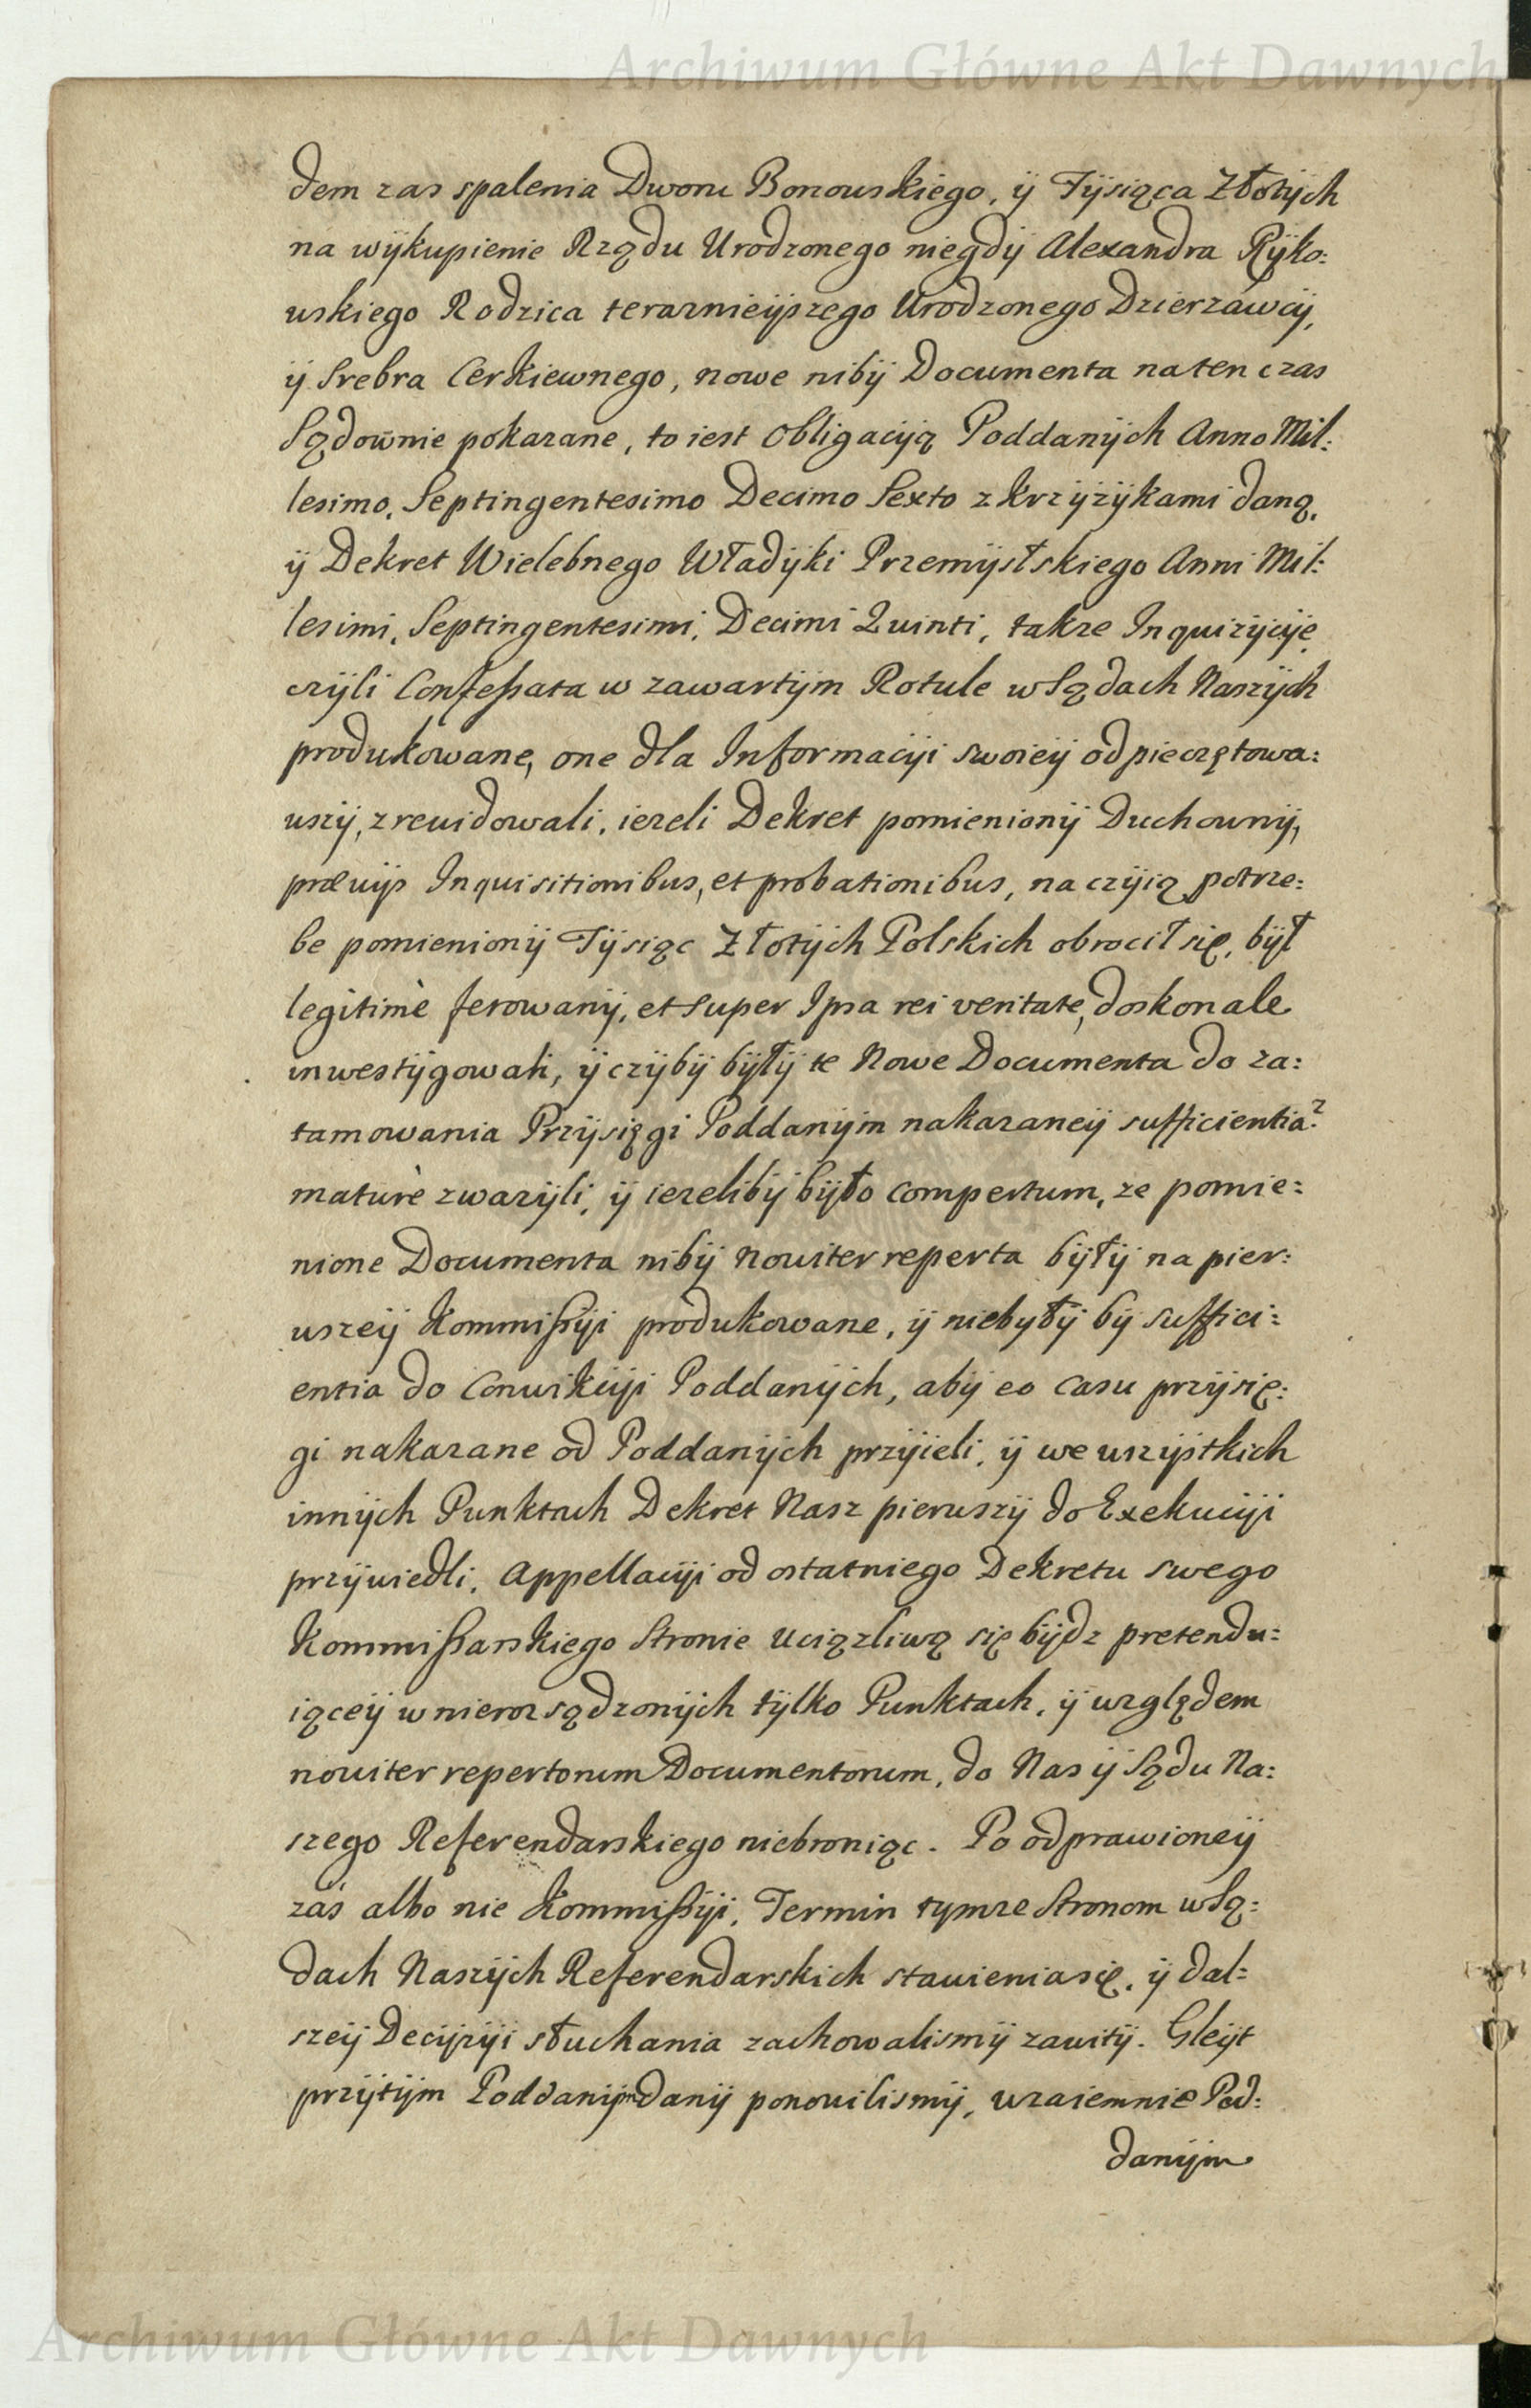 Archiwum Główne Akt Dawnych
dem zas spalenia Dworu Bonowskiego, ÿ Tÿsiąca Złotÿch
na wÿkupienie Rządu Urodzonego niegdÿ Alexandra Rÿko:
wskiego Rodzica teraznieÿszego Urodzonego Dzierzáwcÿ,
ÿ Srebra Cerkiewnego, nowe nibÿ Documenta na ten czas
Sądownie pokazane, to iest Obligacÿią Poddanÿch Anno Mil:
lesimo, Septingentesimo Decimo Sexto z krzÿzÿkami daną,
ÿ Dekret Wielebnego Władÿki Przemÿslskiego Anni Mil:
lesimi, Septingentesimi, Decimi Quinti, takze Inquizÿcÿie,
czÿli Confessata w zawartÿm Rotule w Sądach Naszÿch
produkowane, one dla Informacÿi swoieÿ odpieczętowa:
wszÿ, zrewidowali, iezeli Dekret pomienionÿ Duchownÿ,
præviis Inquisitionibus, et probationibus, na czÿią potrze:
be pomienionÿ Tÿsiąc Złotÿch Polskich obrocił się, bÿł
legitimè ferowanÿ, et super Ipsa rei veritate, doskonale
inwestÿgowali, ÿ czÿbÿ bÿłÿ te Nowe Documenta do za:
tamowania Przÿsięgi Poddanÿm nakazaneÿ sufficientia?
maturè zwazÿli, ÿ iezelibÿ bÿło compertum, ze pomie:
nione Documenta nibÿ noviter reperta bÿłÿ na pier:
wszeÿ Kommissÿi produkowane, ÿ niebÿłÿ bÿ suffici:
entia do Conwikcÿi Poddanÿch, abÿ eo casu przÿsię:
gi nakazane od Poddanÿch przÿieli, ÿ we wszÿstkich
innÿch Punktach Dekret Nasz pierwszÿ do Exekucÿi
przÿwiedli, Appellacÿi od ostatniego Dekretu swego
Kommissarskiego Stronie uciązliwą się bÿdz pretendu:
iąceÿ w nierozsądzonÿch tÿlko Punktach, ÿ względem
noviter repertorum Documentorum, do Nas ÿ Sądu Na:
szego Referendarskiego niebroniąc. Po odprawioneÿ
záś albo nie Kommissÿi, Termin tymze Stronom w Są:
dach Naszÿch Referendarskich stawienia się, ÿ dal:
szeÿ Decÿzÿi słuchania zachowalismÿ zawitÿ. Gleÿt
przÿtÿm Poddanÿm danÿ ponowilismÿ, wzaiemnie Pod:
danÿm
Archiwum Główne Akt Dawnych